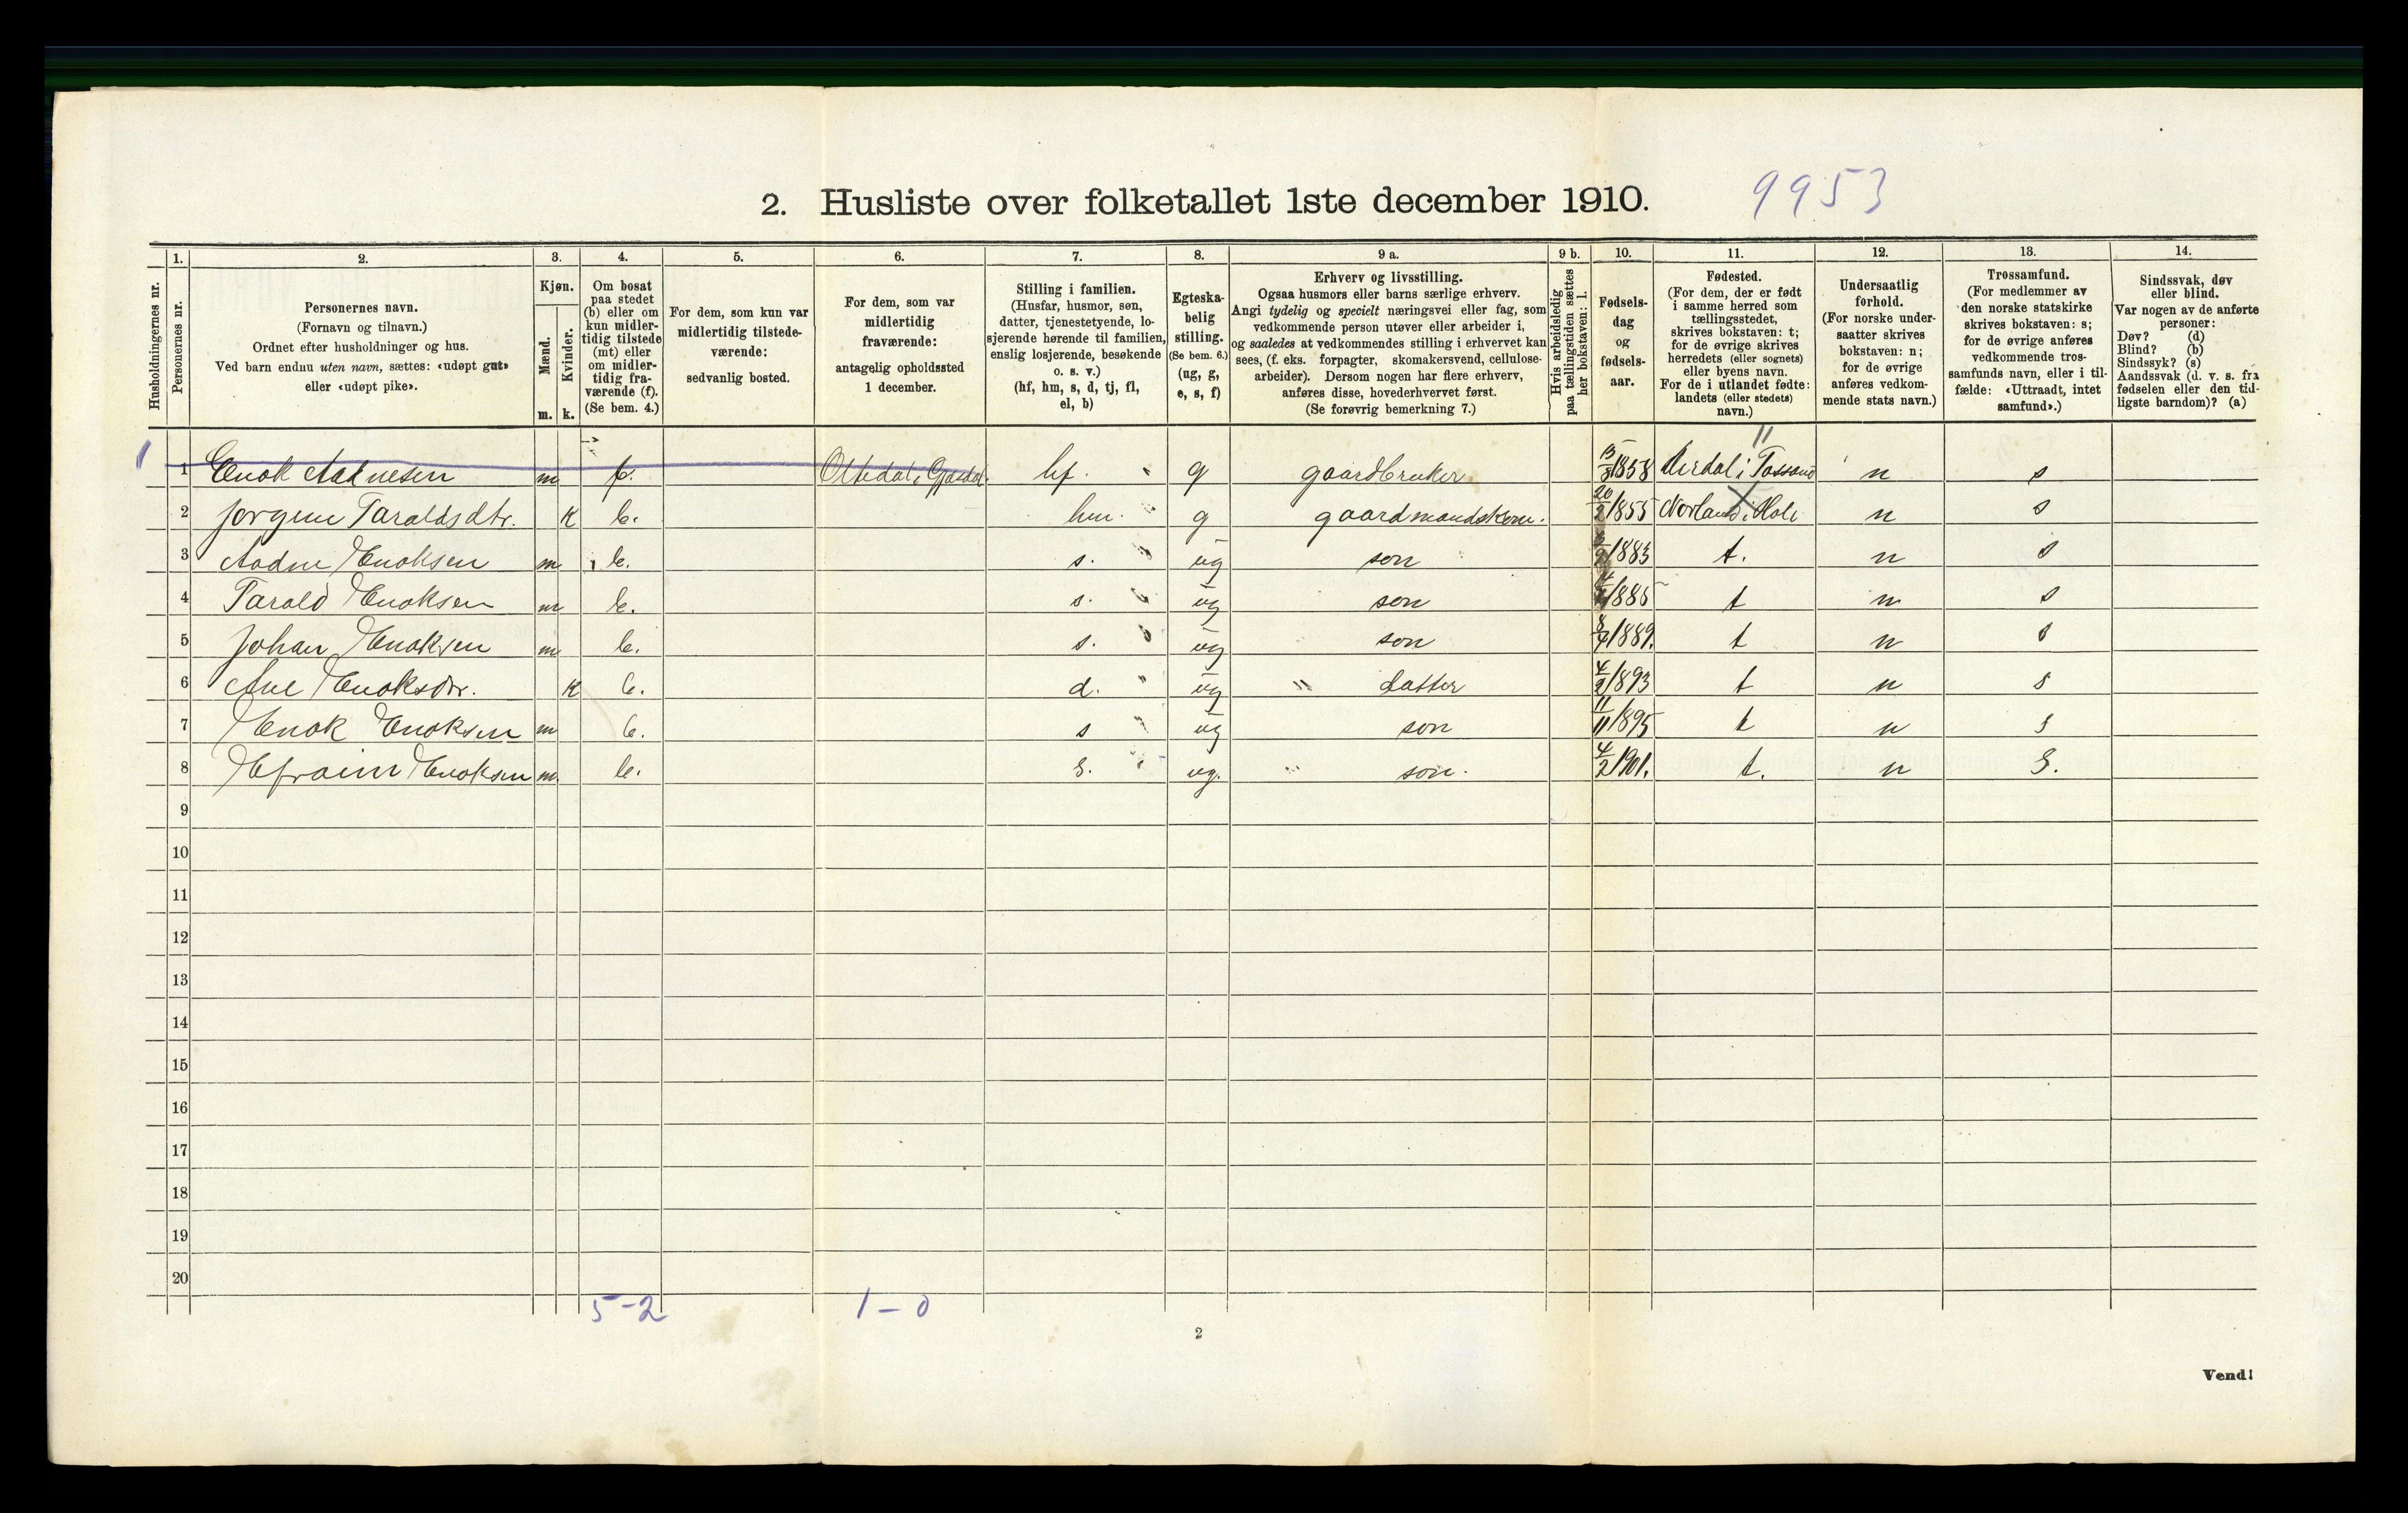 2. Husliste over folketallet 1ste december 1910.
9953
Husholdningernes nr.
1.
Personernes nr.
2.
Personernes navn.
(Fornavn og tilnavn.)
Ordnet efter husholdninger og hus.
Ved barn endnu uten navn, sættes: «udøpt gut»
eller «udøpt pike».
3.
Kjøn.
Mænd.
Kvinder.
m. k.
4.
Om bosat
paa stedet
(b) eller om
kun midler-
tidig tilstede
(mt) eller
om midler-
tidig fra-
værende (f).
(Se bem. 4.)
5.
For dem, som kun var
midlertidig tilstede-
værende:
sedvanlig bosted.
6.
For dem, som var
midlertidig
fraværende:
antagelig opholdssted
1 december.
7.
Stilling i familien.
(Husfar, husmor, søn,
datter, tjenestetyende, lo-
sjerende hørende til familien,
enslig losjerende, besøkende
o. s. v.)
(hf, hm, s, d, tj, fl,
el, b)
8.
Egteska-
belig
stilling.
(Se bem. 6.)
(ug, g,
e, s, f)
9 a.
Erhverv og livsstilling.
Ogsaa husmors eller barns særlige erhverv.
Angi tydelig og specielt næringsvei eller fag, som
vedkommende person utøver eller arbeider i,
og saaledes at vedkommendes stilling i erhvervet kan
sees, (f. eks. forpagter, skomakersvend, cellulose-
arbeider). Dersom nogen har flere erhverv,
anføres disse, hovederhvervet først.
(Se forøvrig bemerkning 7.)
9 b.
Hvis arbeidsledig
paa tællingstiden sættes
her bokstaven: l.
10.
Fødsels-
dag
og
fødsels-
aar.
11.
Fødested.
(For dem, der er født
i samme herred som
tællingsstedet,
skrives bokstaven: t;
for de øvrige skrives
herredets (eller sognets)
eller byens navn.
For de i utlandet fødte:
landets (eller stedets)
navn.)
12.
Undersaatlig
forhold.
(For norske under-
saatter skrives
bokstaven: n;
for de øvrige
anføres vedkom-
mende stats navn.)
13.
Trossamfund.
(For medlemmer av
den norske statskirke
skrives bokstaven: s;
for de øvrige anføres
vedkommende tros-
samfunds navn, eller i til-
fælde: «Uttraadt, intet
samfund».)
14.
Sindssvak, døv
eller blind.
Var nogen av de anførte
personer:
Døv? (d)
Blind? (b)
Sindssyk? (s)
Aandssvak (d. v. s. fra
fødselen eller den tid-
ligste barndom)? (a)
1 1 Enok Aadnesen m f. Oltedal i Gjesdal. hf. g gaardbruker 1858 i n s
2 Jorgine Taraldsdtr. k b. hm. g gaardmandskone. 20/2 1855 i Hole n s
3 Aadne Enoksen m b. s. ug son 1883 t. n s
4 Tarald Enoksen m b. s. ug son t n s
5 Johan Enoksen m b. s. ug son 8/4 1889. t n s
6 Ane Enoksdtr. k b. d. ug " datter 4/2 1893 t n s
7 Enok Enoksen m b. s ug son 11/11 1895 t n s
8 Efraim Enoksen m. b. s. ug. " son. 4/2 1901. t. n s.
9
10
11
12
13
14
15
16
17
18
19
20
5-2 1-0
2
Vend!